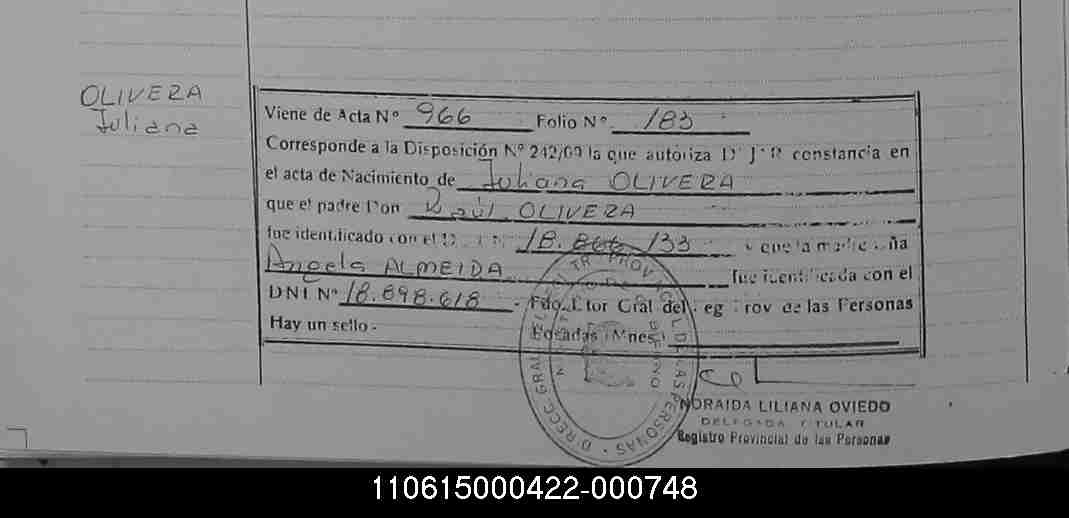 OLIVERA
Juliana
Viene de Acta Nº 966 Folio Nº 183
Corresponde a la Disposición Nº 242/09 la que autoriza D J R constancia en
el acta de Nacimiento de Juliana OLIVERA
que el padre Don Raúl OLIVERA
fue identificado con el D 18. 133 y que la madre
Angela ALMEIDA fue identificada con el
DNI Nº 18.898.618 - Fdo. tor Gral del eg rov de las Personas
Hay un sello - Posadas Mnes
NORAIDA LILIANA OVIEDO
DELEGADA TITULAR
Registro Provincial de las Personas
110615000422-000748